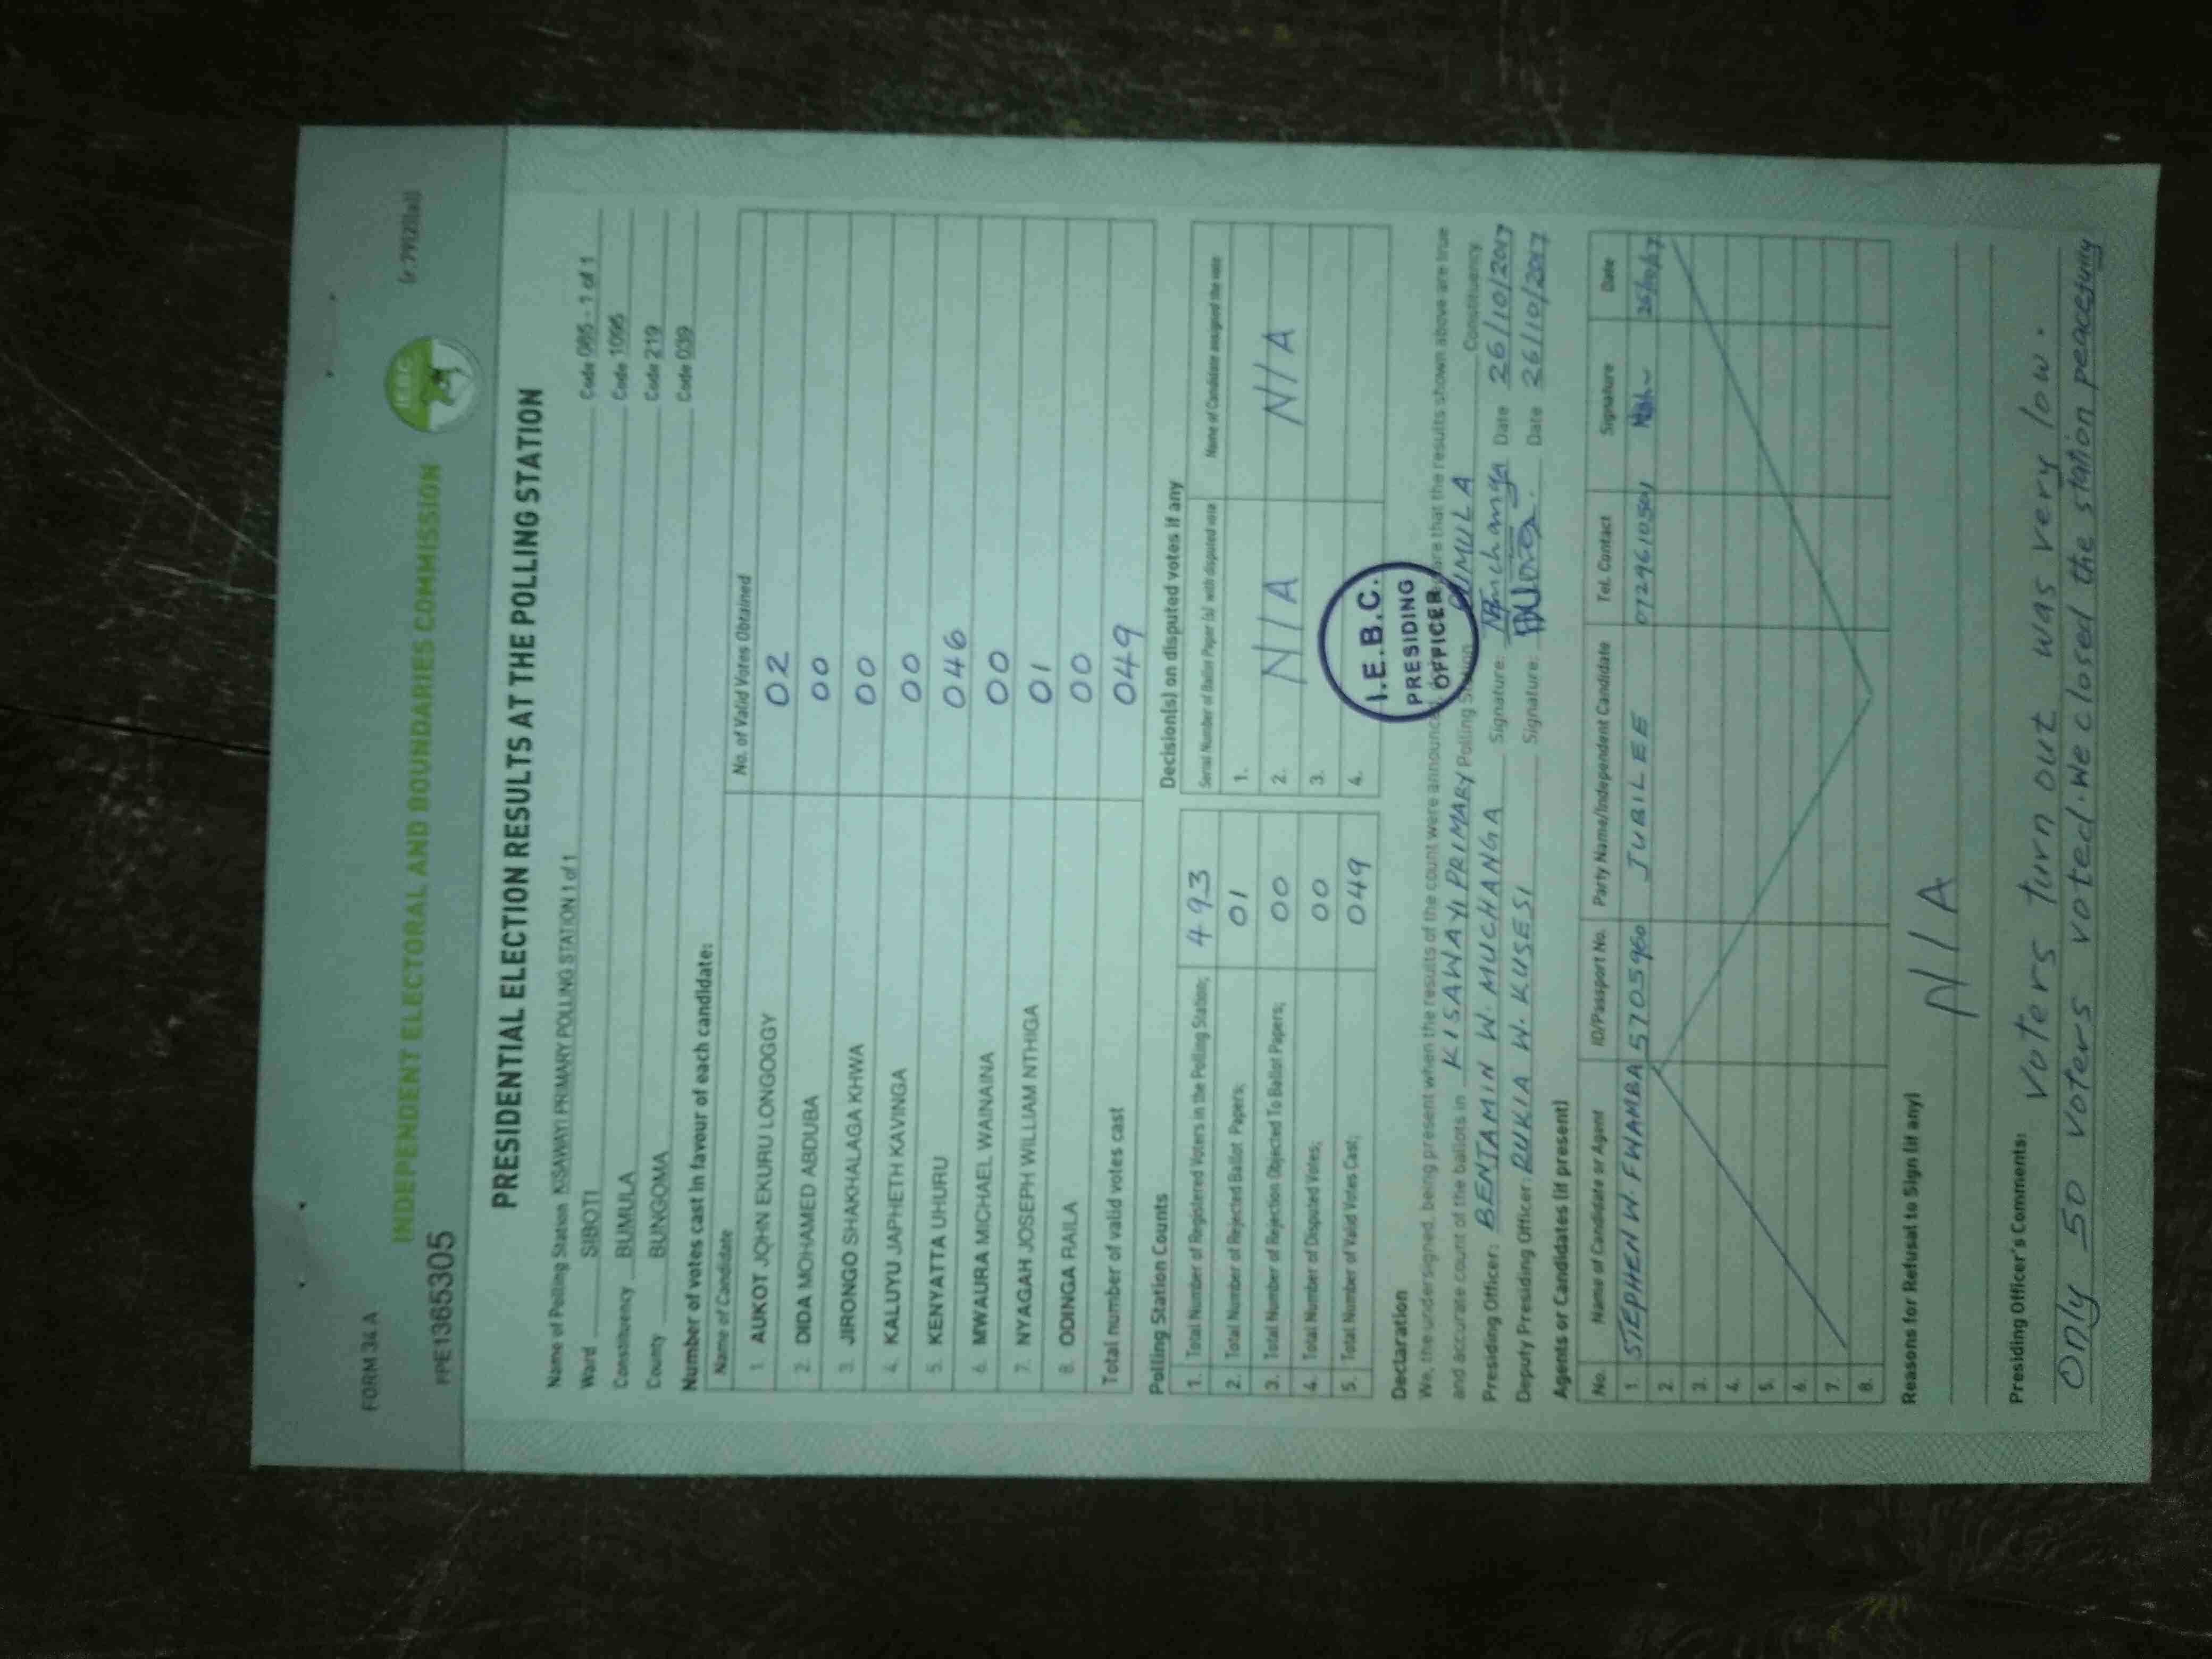 FORM 34 A
(r.79(2)(a))
INDEPENDENT ELECTORAL AND BOUNDARIES COMMISSION
IEBC
PRE1365305
PRESIDENTIAL ELECTION RESULTS AT THE POLLING STATION
Name of Polling Station KISAWAYI PRIMARY POLLING STATION 1 of 1 Code 085 - 1 of 1
Ward SIBOTI Code 1095
Constituency BUMULA Code 219
County BUNGOMA Code 039
Number of votes cast in favour of each candidate:
Name of Candidate No. of Valid Votes Obtained
1. AUKOT JOHN EKURU LONGOGGY 02
2. DIDA MOHAMED ABDUBA 00
3. JIRONGO SHAKHALAGA KHWA 00
4. KALUYU JAPHETH KAVINGA 00
5. KENYATTA UHURU 046
6. MWAURA MICHAEL WAINAINA 00
7. NYAGAH JOSEPH WILLIAM NTHIGA 01
8. ODINGA RAILA 00
Total number of valid votes cast 049
Polling Station Counts
1. Total Number of Registered Voters in the Polling Station; 493
2. Total Number of Rejected Ballot Papers; 01
3. Total Number of Rejection Objected To Ballot Papers; 00
4. Total Number of Disputed Votes; 00
5. Total Number of Valid Votes Cast; 049
Decision(s) on disputed votes if any
Serial Number of Ballot Paper (s) with disputed vote Name of Candidate assigned the vote
1.
2. N/A N/A
3.
4.
I.E.B.C.
PRESIDING
OFFICER
Declaration
We, the undersigned, being present when the results of the count were announced, that the results shown above are true
and accurate count of the ballots in KISAWAYI PRIMARY Polling Station BUMULA Constituency
Presiding Officer: BENJAMIN W. MUCHANGA Signature: Date 26/10/2017
Deputy Presiding Officer: RUKIA W. KUSESI Signature: Date 26/10/2017
Agents or Candidates (if present)
No. Name of Candidate or Agent ID/Passport No. Party Name/Independent Candidate Tel. Contact Signature Date
1. STEPHEN W. FWAMBA 5705960 JUBILEE 26/10/17
2.
3.
4.
5.
6.
7.
8.
Reasons for Refusal to Sign (if any)
N/A
Presiding Officer's Comments: Voters turn out was very low.
Only 50 voters voted. We closed the station peacefully